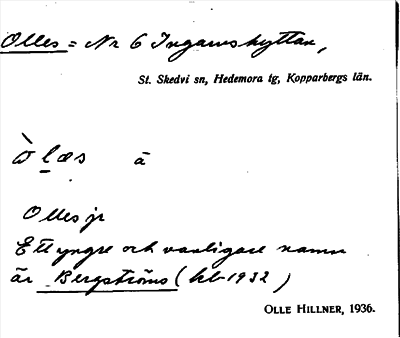 Olles = Nr 6 Ingarvshyttan,
St. Skedvi sn, Hedemora tg, Kopparbergs län.
ò̀læs ä
Olles jr
Ett yngre och vanligare namn
är Bergströms (kb 1932)
OLLE HILLNER, 1936.